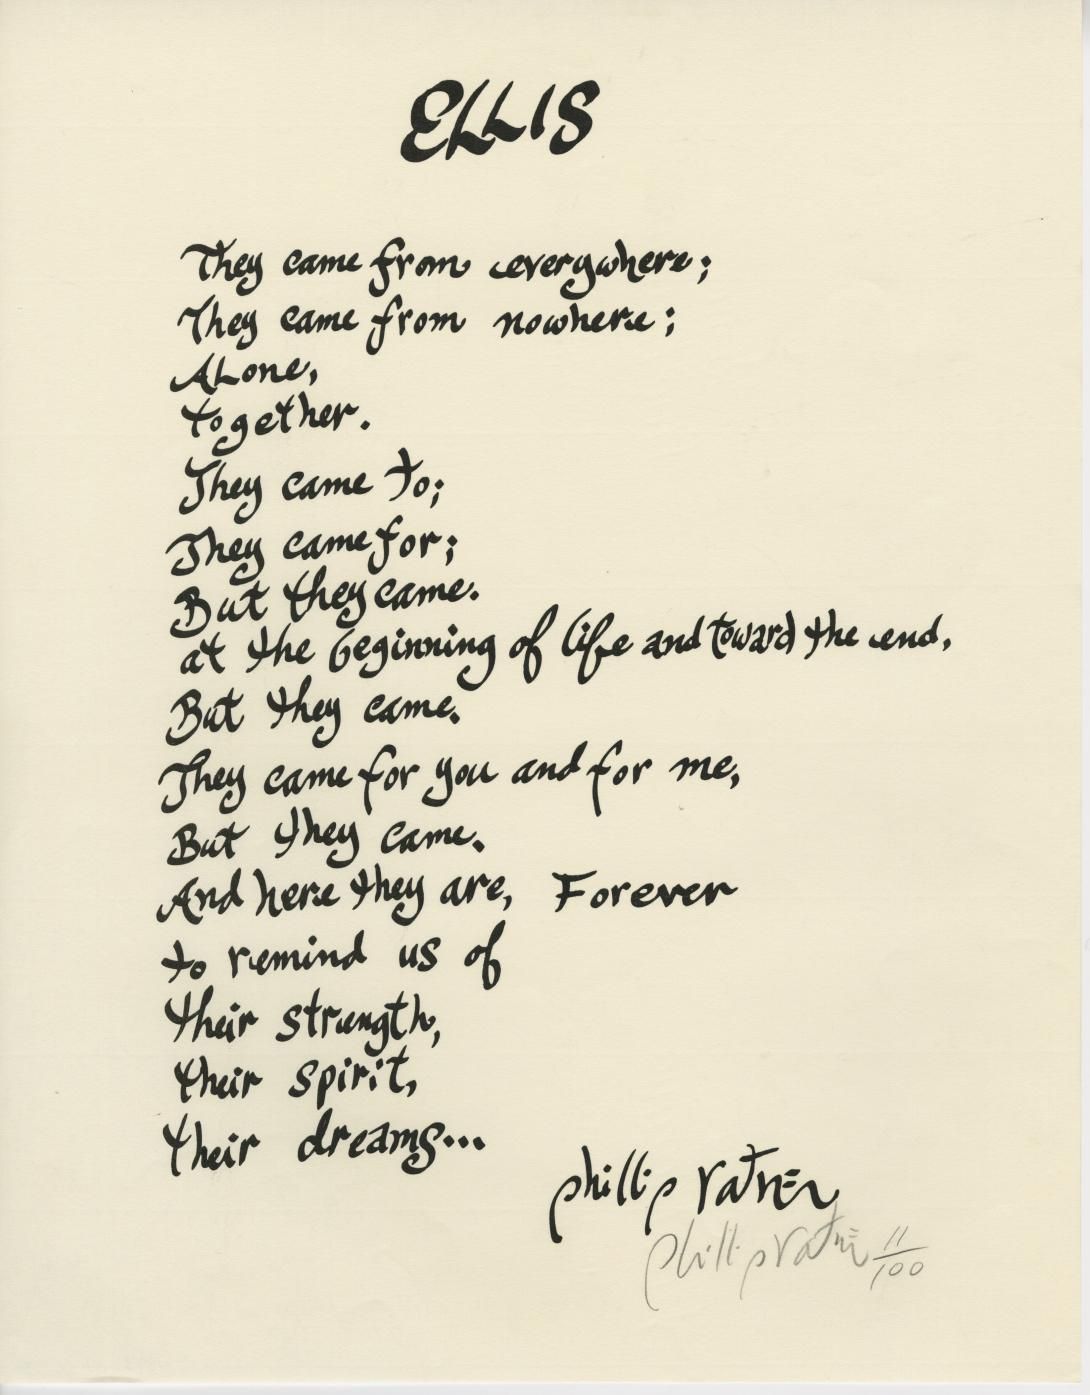 ELLIS
They came from everywhere;
They came from nowhere;
ALone,
together.
They came to;
They came for;
But they came.
at the beginning of life and toward the end,
But they came.
They came for you and for me,
But they came.
And here they are, Forever
to remind us of
their strength,
their spirit,
their dreams...
phillip ratner
phillip ratner 11/100